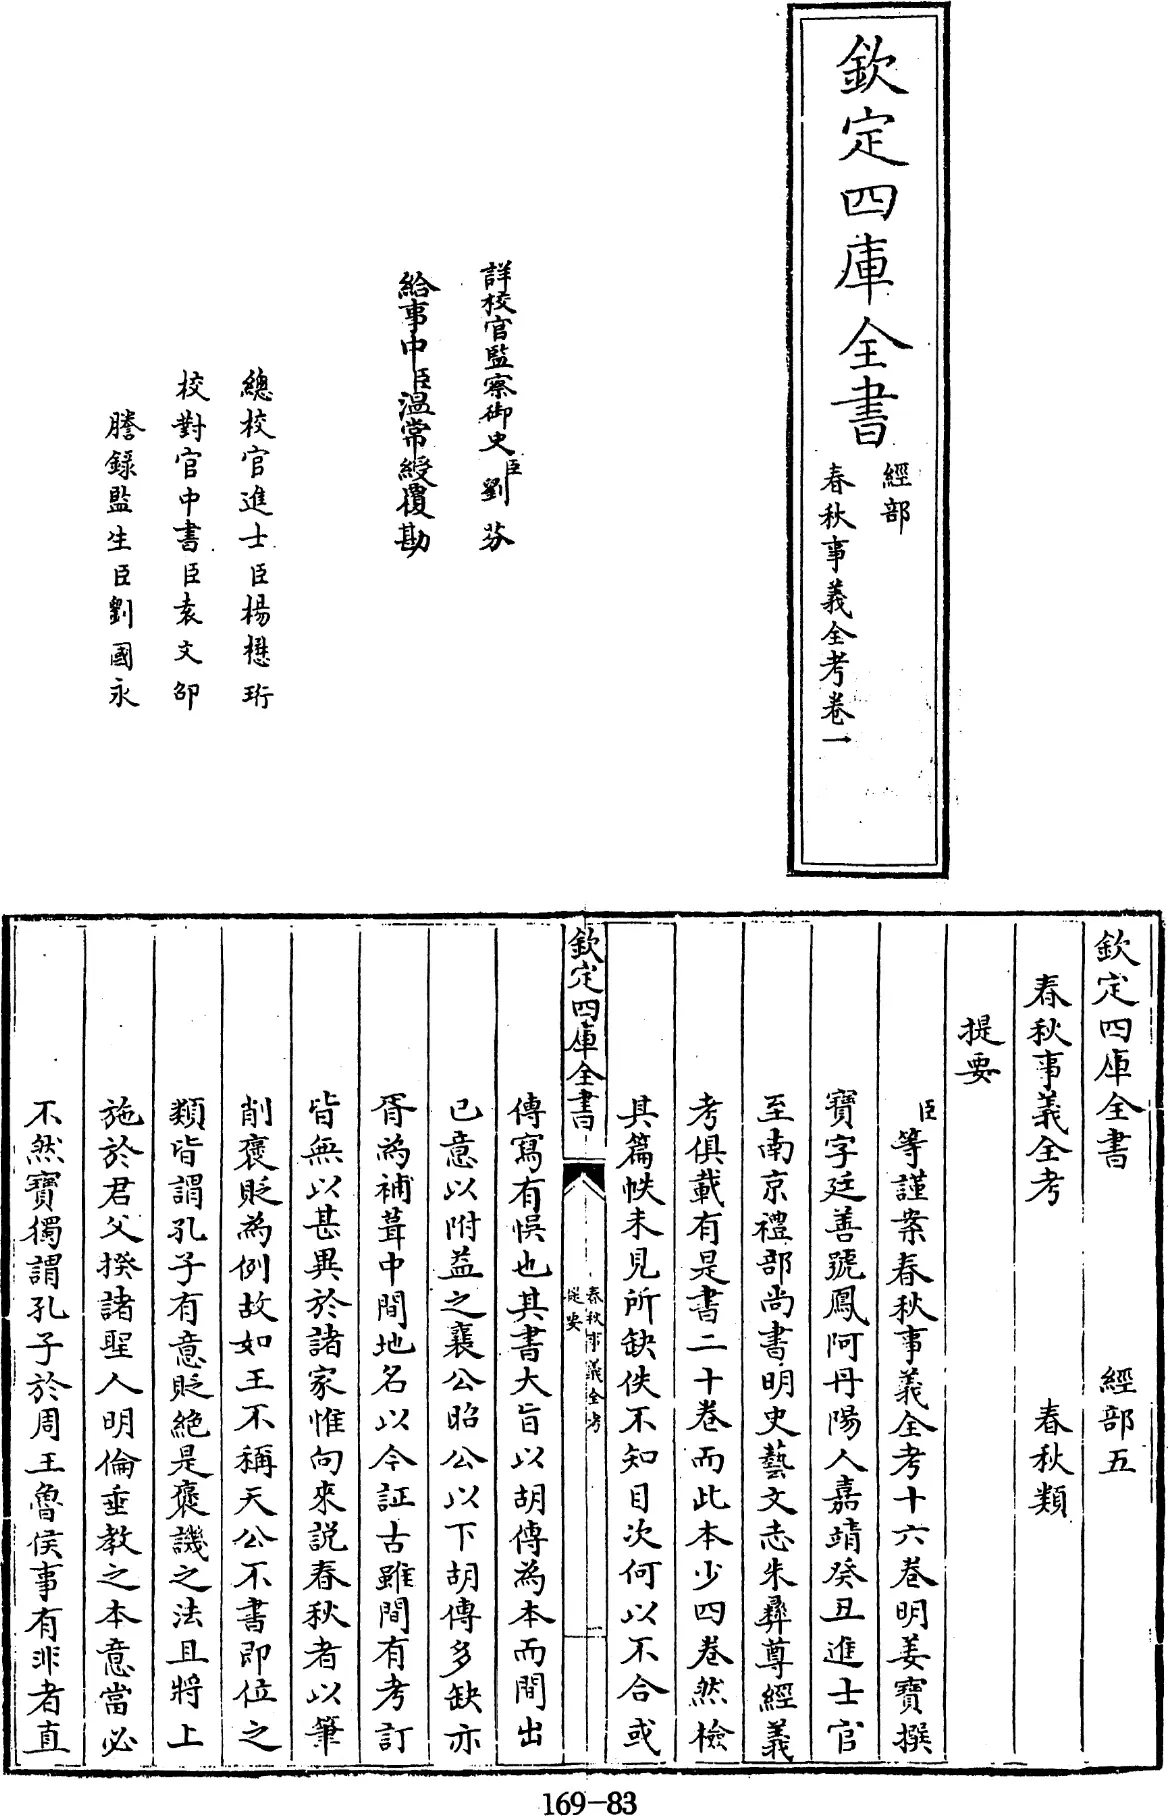 欽定四庫全書
經部
春秋事義全考卷一
詳校官監察御史臣劉芬
給事中臣溫常綬覆勘
總校官進士臣楊懋珩
校對官中書臣袁文邵
謄錄監生臣劉國永
欽定四庫全書 經部五
春秋事義全考 春秋類
提要
臣等謹案春秋事義全考十六卷明姜寶撰
寶字廷善號鳳阿丹陽人嘉靖癸丑進士官
至南京禮部尚書明史藝文志朱彝尊經義
考俱載有是書二十卷而此本少四卷然檢
其篇帙未見所缺佚不知目次何以不合或
欽定四庫全書
春秋事義全考
提要
傳寫有悞也其書大旨以胡傳為本而間出
已意以附益之襄公昭公以下胡傳多缺亦
胥為補葺中間地名以今証古雖間有考訂
皆無以甚異於諸家惟向來説春秋者以筆
削褒貶為例故如王不稱天公不書即位之
類皆謂孔子有意貶絶是褒譏之法且將上
施於君父揆諸聖人明倫垂教之本意當必
不然寶獨謂孔子於周王魯侯事有非者直
169-83